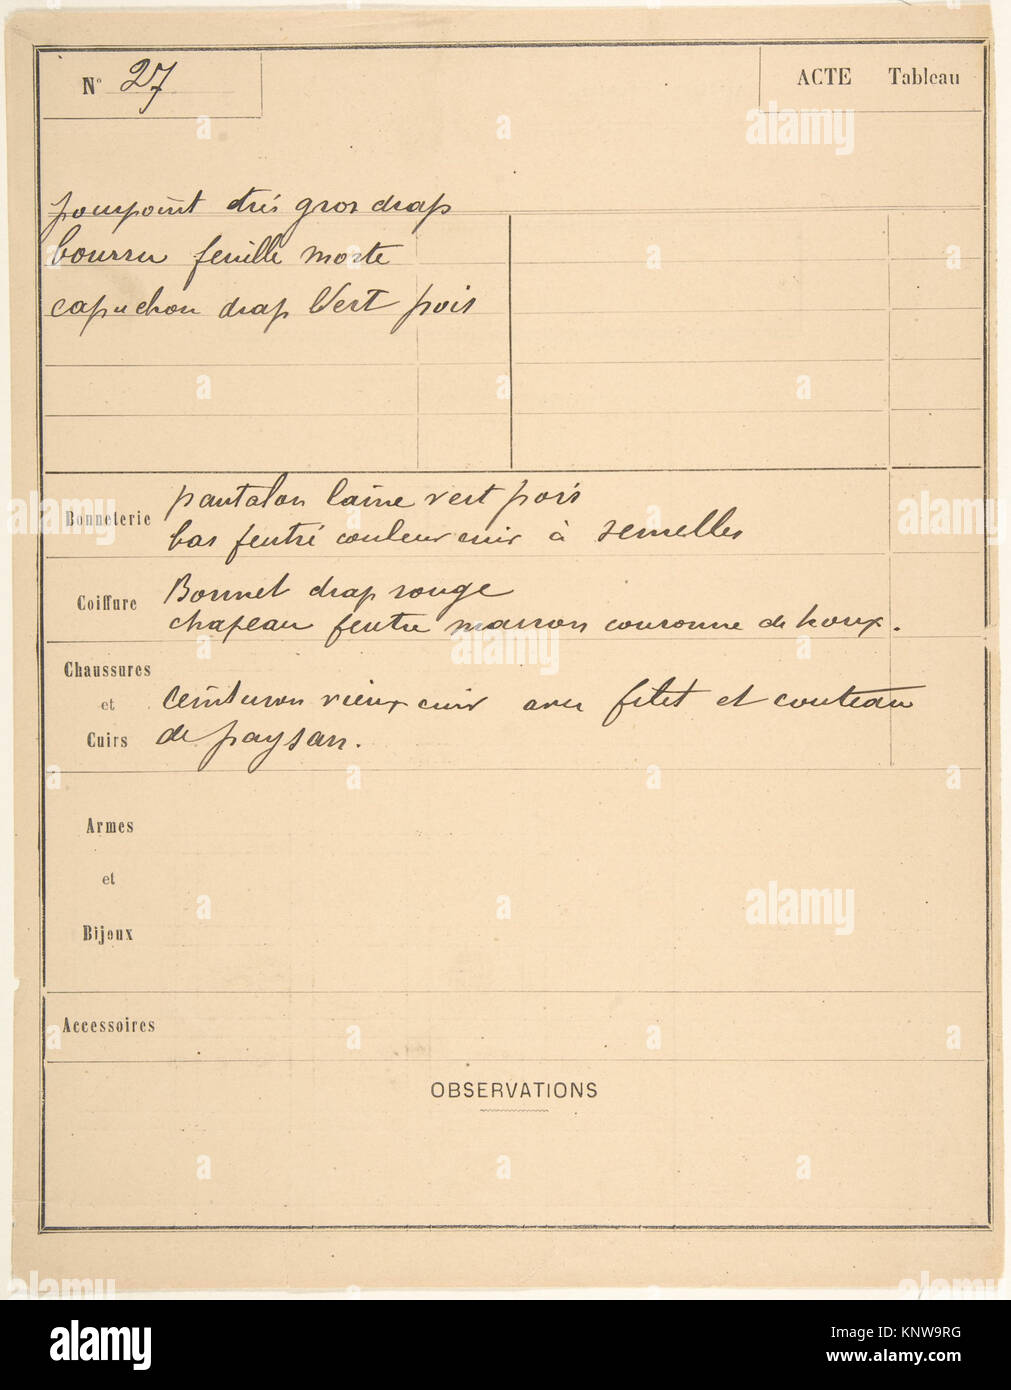 N° 27
ACTE Tableau
pourpoint très gros drap
bourru feuille morte
capuchon drap Vert pois
Bonneterie
pantalon laine vert pois
bas feutré couleur cuir à semelles
Coiffure
Bonnet drap rouge
chapeau feutre marron couronne de houx.
Chaussures
et
Cuirs
ceinturon vieux cuir avec filet et couteau
de paysan.
Armes
et
Bijoux
Accessoires
OBSERVATIONS
alamy
Image ID: KNW9RG
www.alamy.com